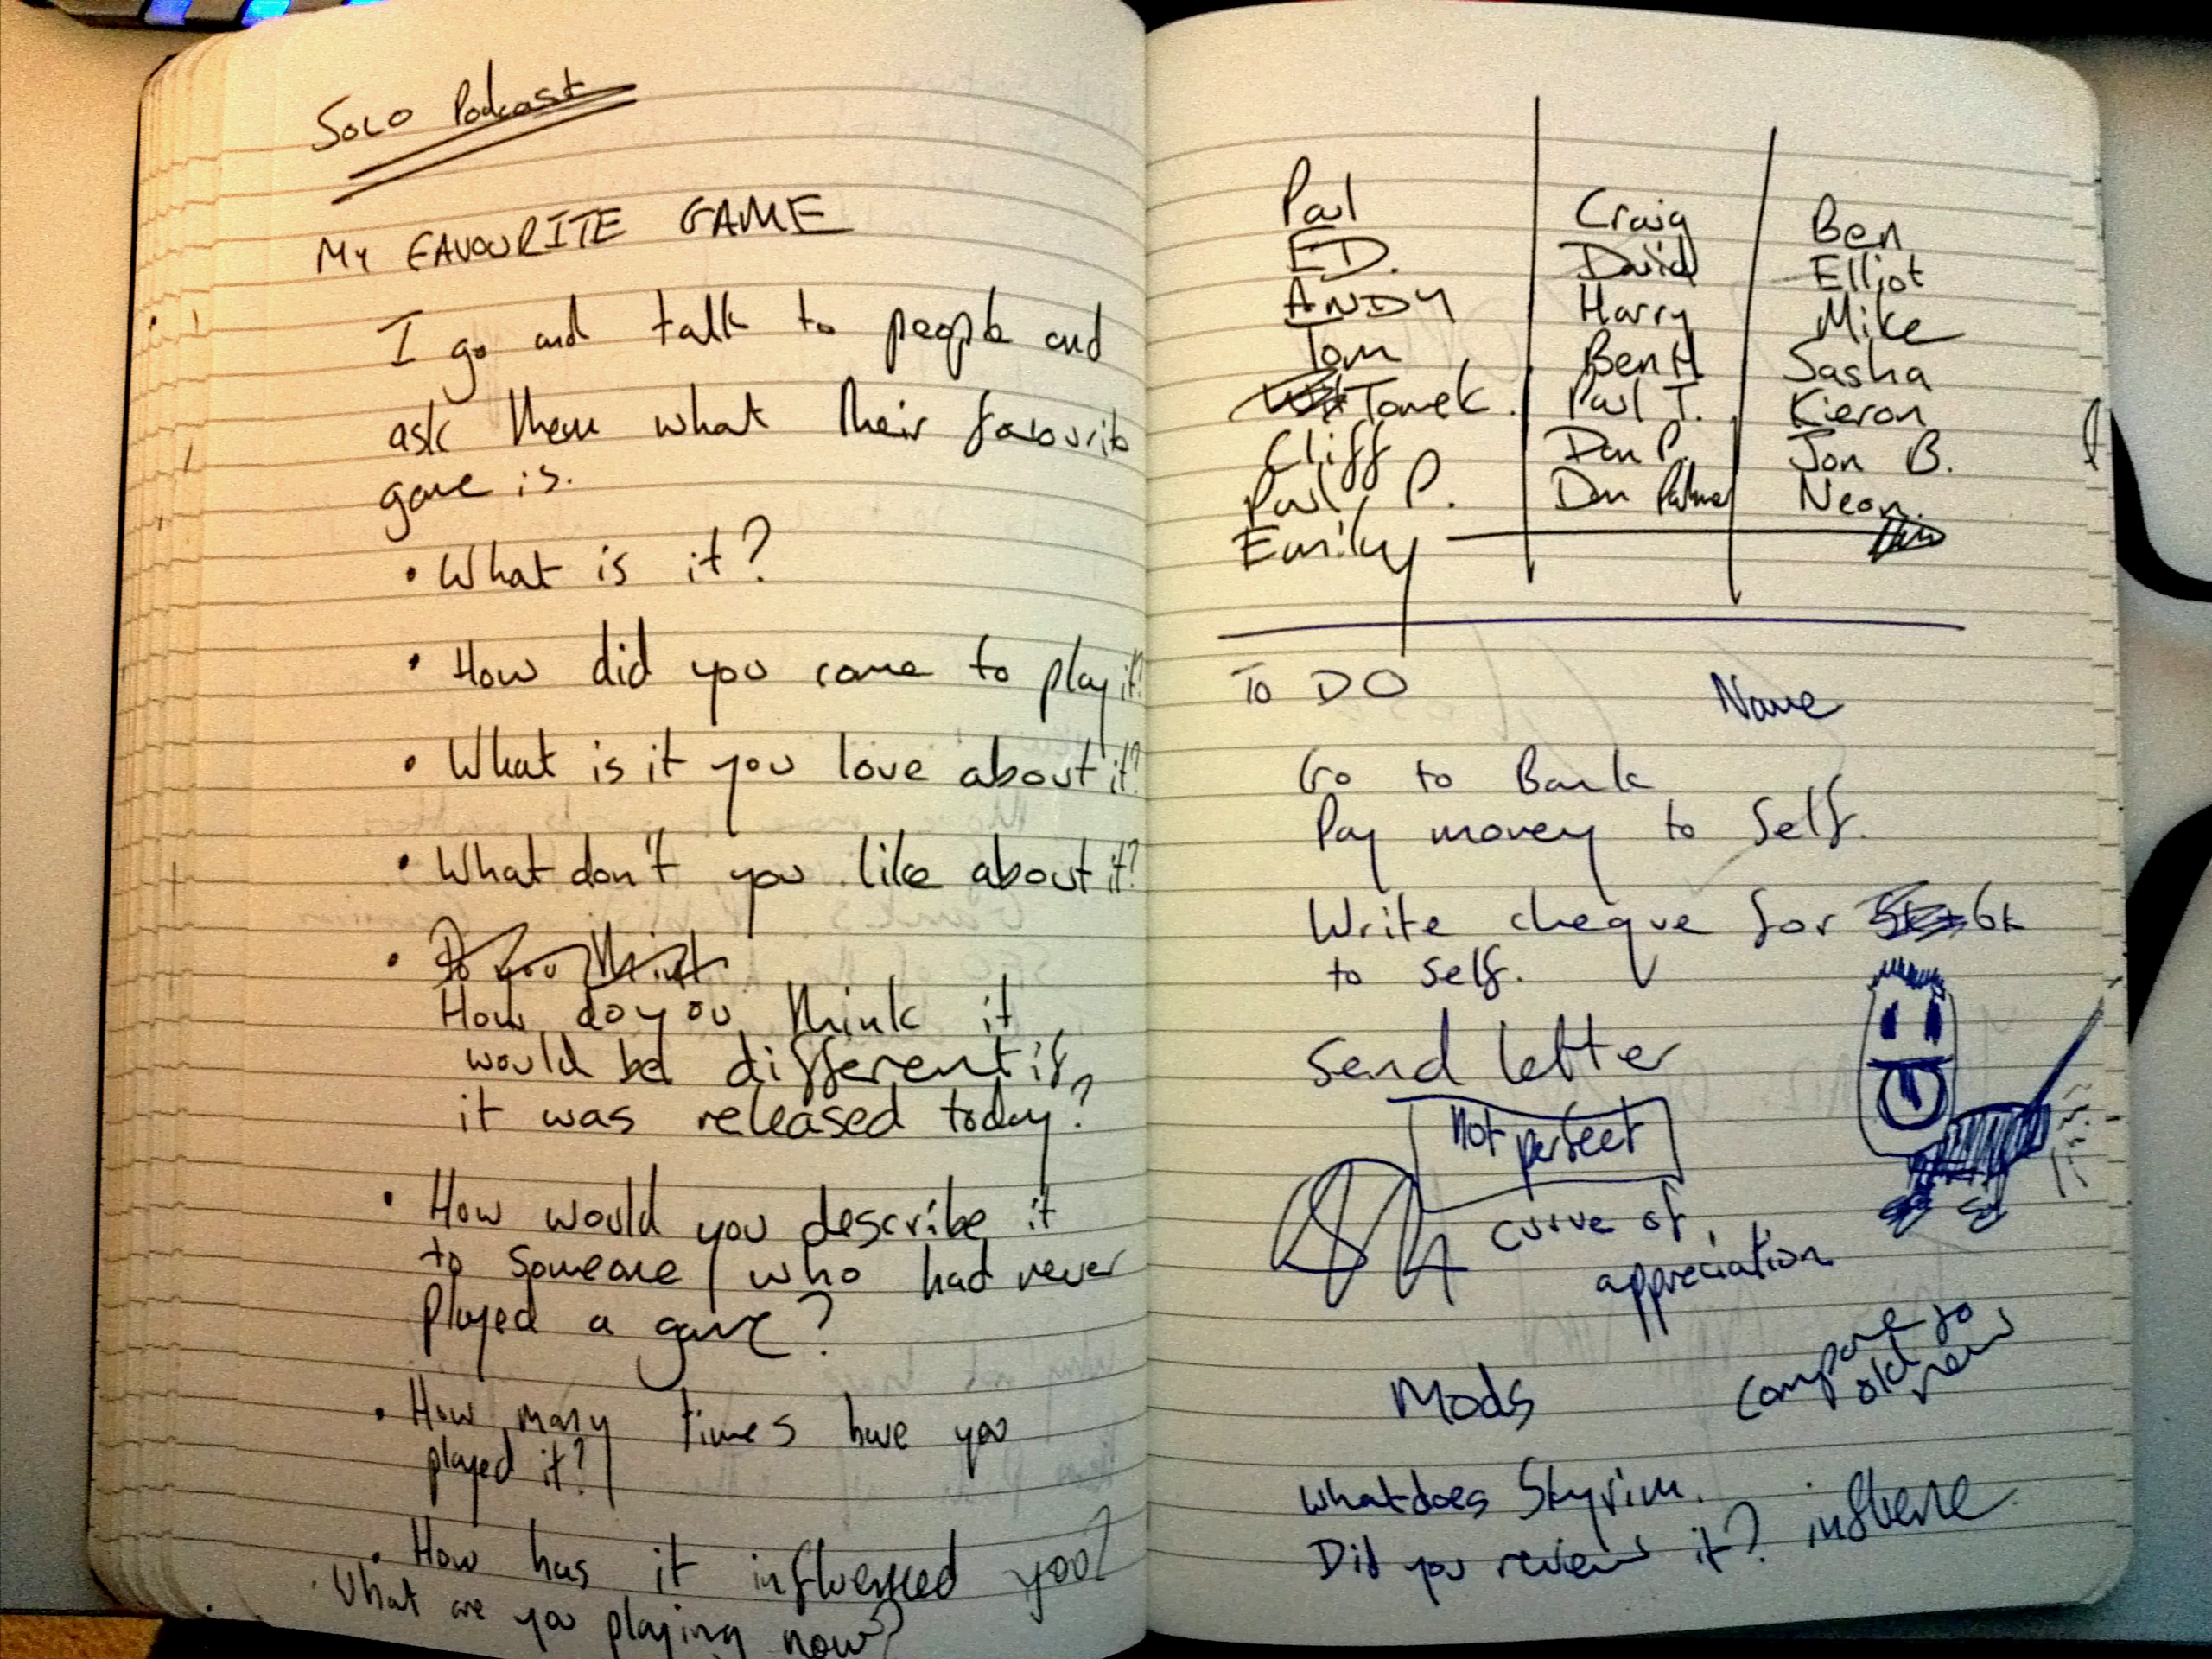 Solo Podcast
MY FAVOURITE GAME
I go and talk to people and
ask them what their favourite
game is.
• What is it?
• How did you come to play it?
• What is it you love about it?
• What don't you like about it?
• Do you think
How do you think it
would be different if
it was released today?
• How would you describe it
to someone who had never
played a game?
• How many times have you
played it?
• How has it influenced you?
• What are you playing now?
Paul
ED.
ANDY
Tom
Tomek.
Cliff
Paul P.
Emily
Craig
David
Harry
Ben H
Paul T.
Dan P.
Dan Palmer
Ben
Elliot
Mike
Sasha
Kieron
Jon B.
Neon.
TO DO
Name
Go to Bank
Pay money to Self.
Write cheque for 6k
to self.
Send letter
Not perfect
curve of
appreciation
Mods
compare to
old new
what does Skyrim.
Did you review it? influence